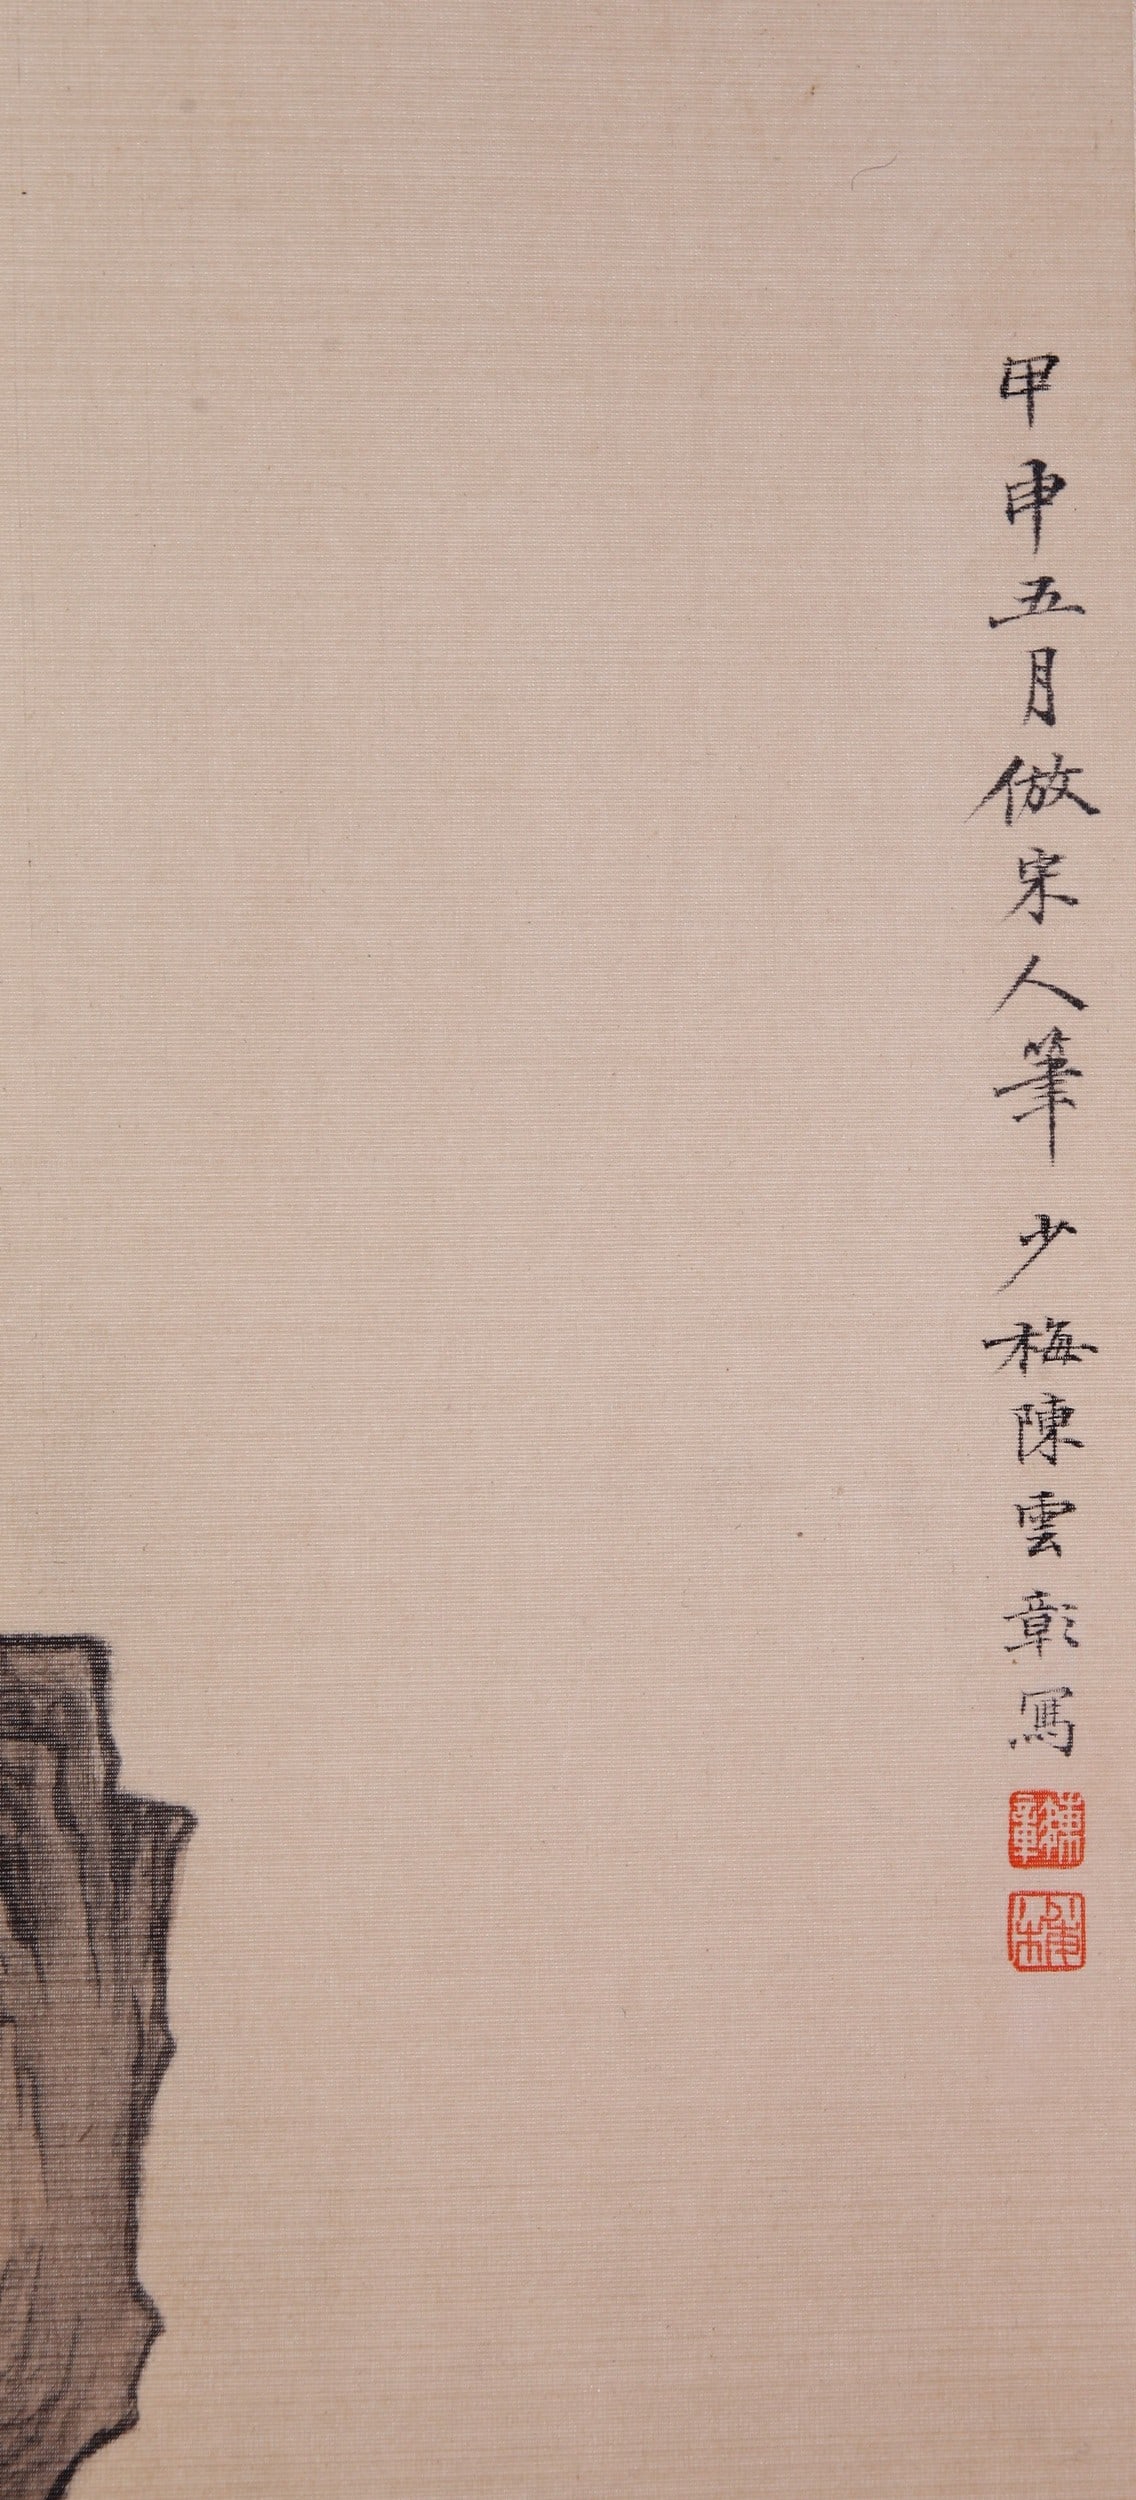 甲申五月倣宋人筆少梅陳雲彰寫